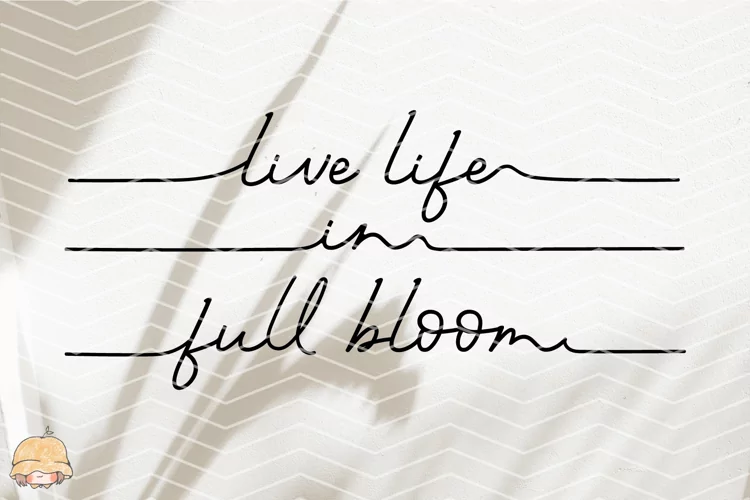 live life
in
full bloom